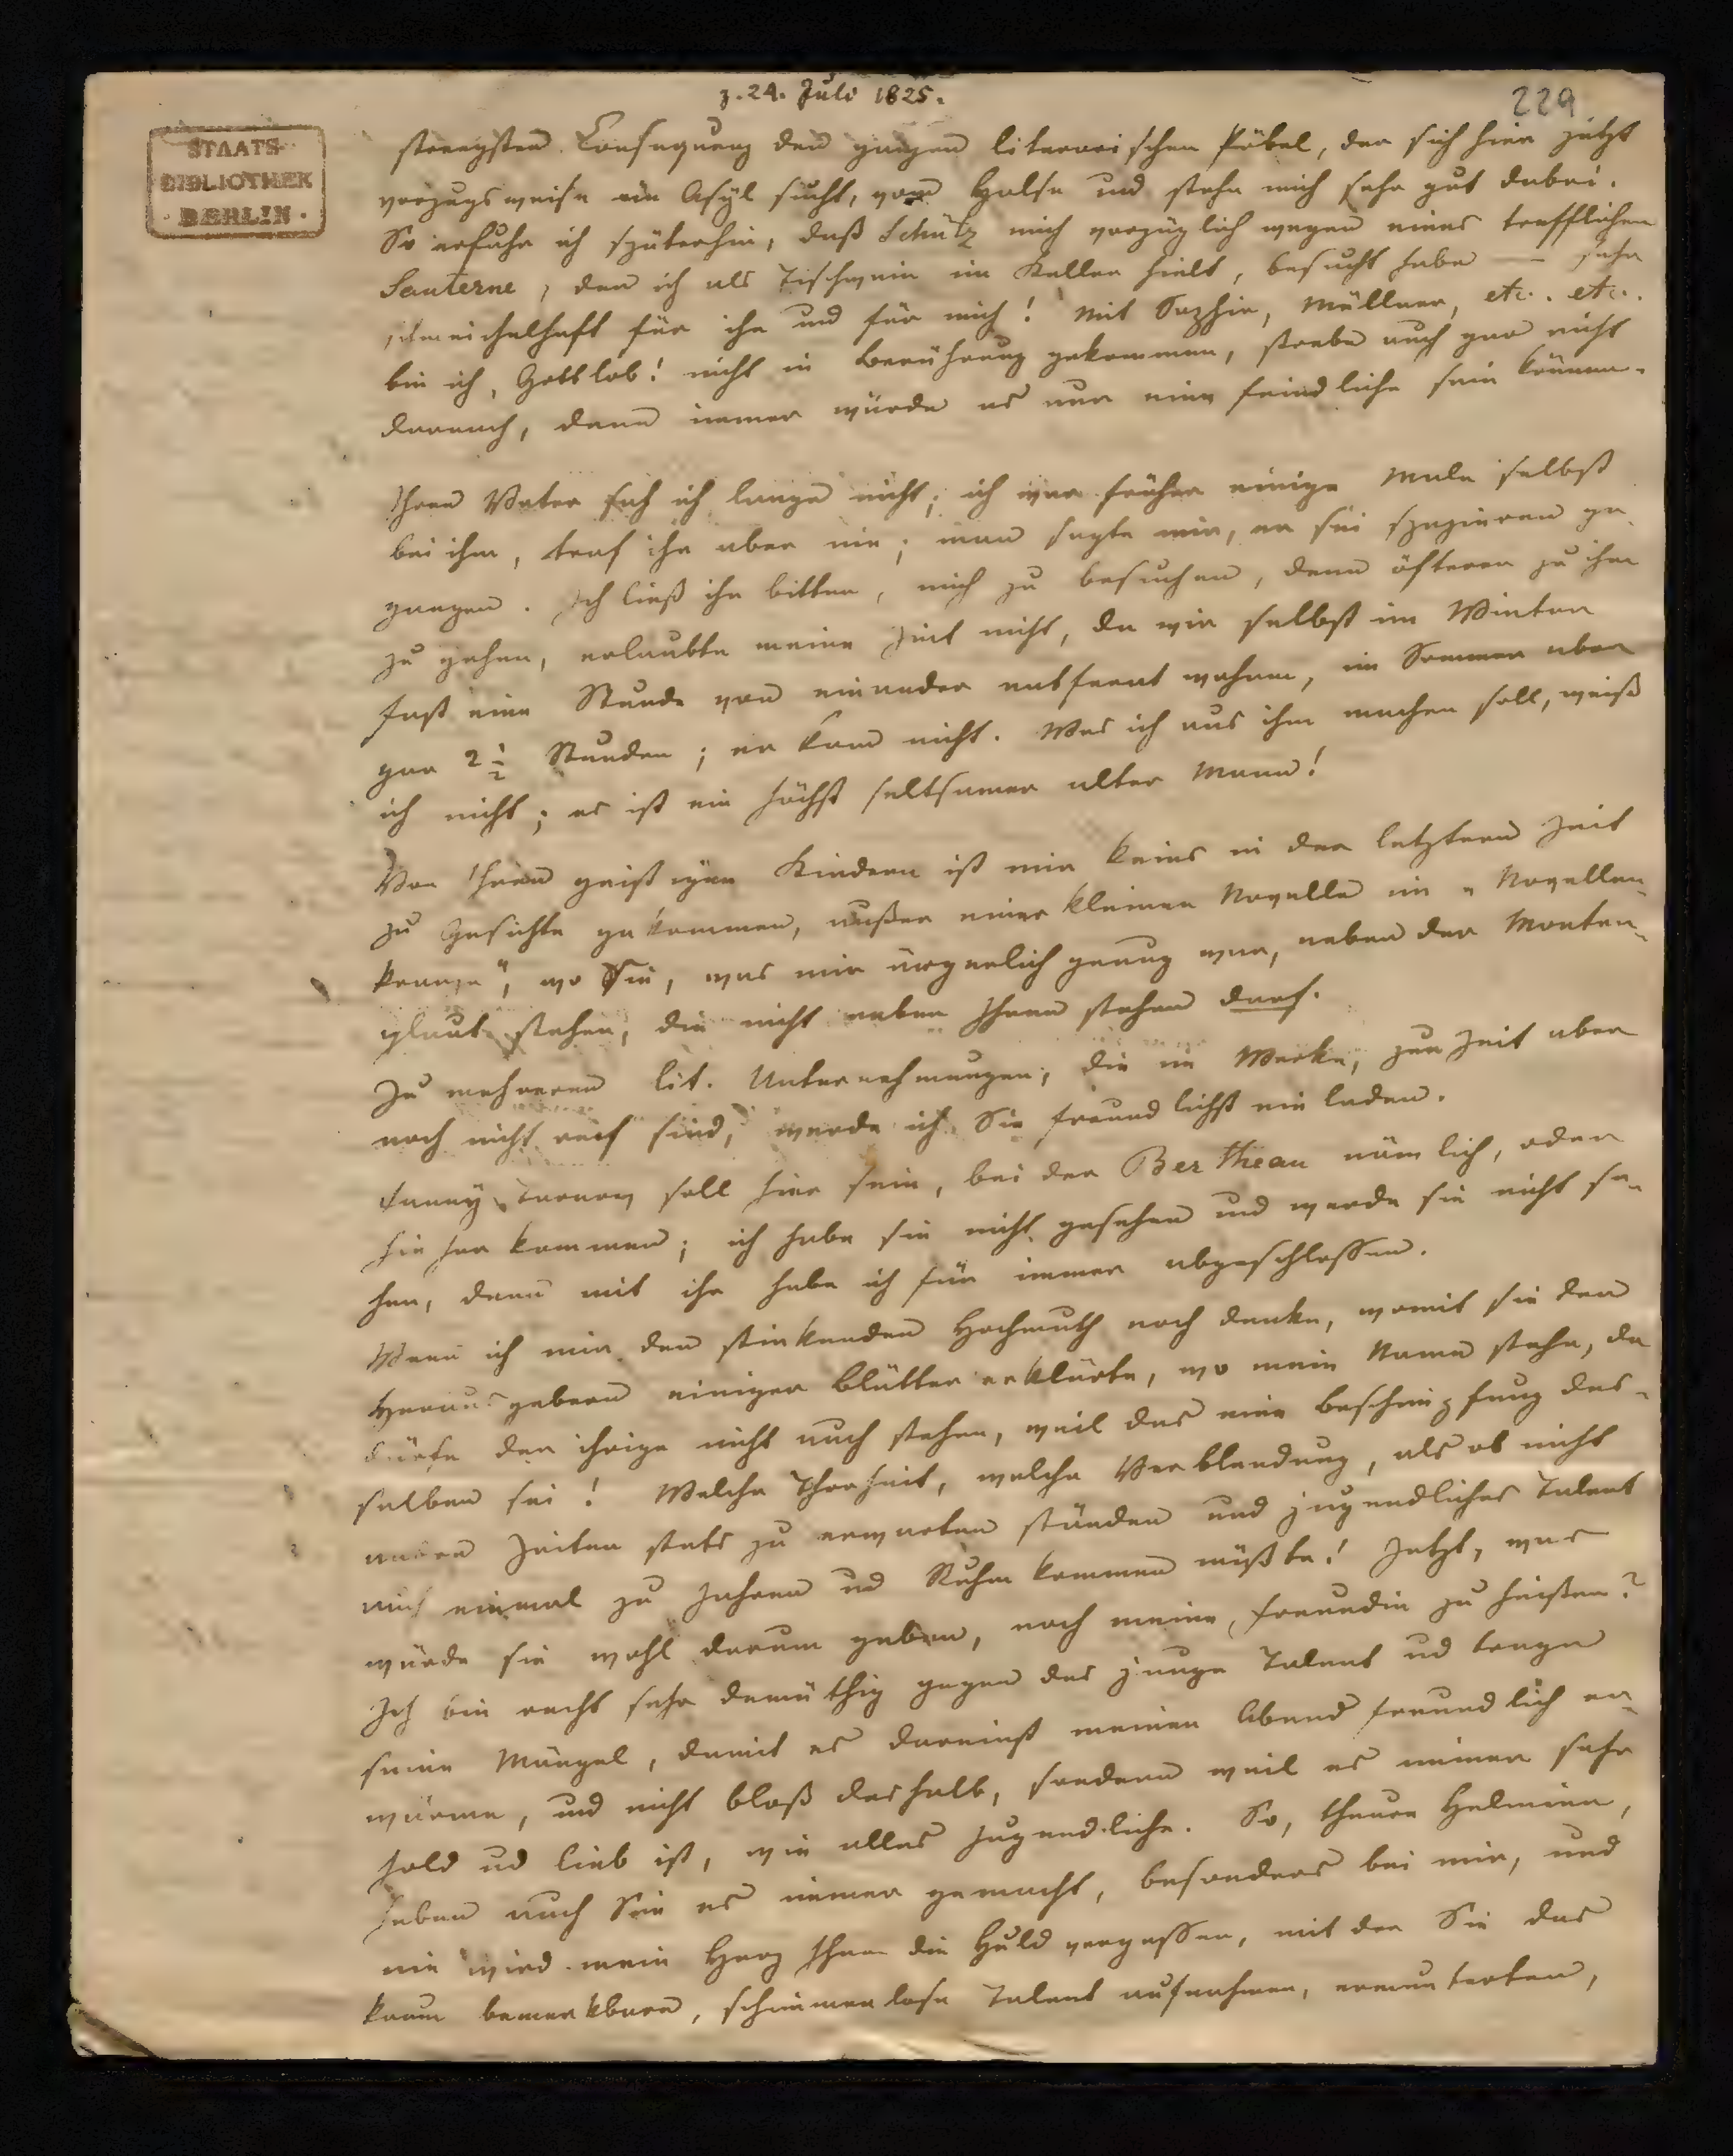 z. 24. Juli 1825.
229
STAATS-
BIBLIOTHEK
· BERLIN ·
strengsten Consequenz den ganzen literarischen Pöbel, der sich hier jetzt
vorzugsweise ein Asyl sucht, vom Halse und stehe mich sehr gut dabei.
So erfuhr ich späterhin, daß Schütz mich vorzüglich wegen eines trefflichen
Sauterne, den ich als Tischwein im Keller hielt, besucht habe — sehr
schmeichelhaft für ihn und für mich! Mit Saphir, Müllner, etc. etc.
bin ich, Gottlob! nicht in Berührung gekommen, strebe auch gar nicht
darnach, denn immer würde es nur eine feindliche sein können.
Ihren Vater sah ich lange nicht; ich war früher einige Male selbst
bei ihm, traf ihn aber nie; man sagte mir, er sei spazieren ge-
gangen. Ich ließ ihn bitten, mich zu besuchen, denn öfterer zu ihm
zu gehen, erlaubte meine Zeit nicht, da wir selbst im Winter
fast eine Stunde von einander entfernt wohnen, im Sommer aber
gar 2 1/2 Stunden; er kam nicht. Was ich aus ihm machen soll, weiß
ich nicht; es ist ein höchst seltsamer alter Mann!
Von Ihren geistigen Kindern ist mir keins in der letztern Zeit
zu Gesichte gekommen, außer einer kleinen Novelle im „Novellen-
kranze", wo Sie, was mir ärgerlich genug war, neben der Monten-
glaut stehen, die nicht neben Ihnen stehen darf.
Zu mehreren lit. Unternehmungen, die im Werke, zur Zeit aber
noch nicht reif sind, werde ich Sie freundlichst einladen.
Fanny Tarnow soll hier sein, bei der Bertheau nämlich, oder
hieher kommen; ich habe sie nicht gesehen und werde sie nicht se-
hen, denn mit ihr habe ich für immer abgeschlossen.
Wenn ich mir den stinkenden Hochmuth noch denke, womit sie den
Herausgebern einiger Blätter erklärte, wo mein Name stehe, da
dürfe der ihrige nicht auch stehen, weil das eine Beschimpfung des-
selben sei! Welche Thorheit, welche Verblendung, als ob nicht
andere Zeiten stets zu erwarten ständen und jugendliches Talent
auch einmal zu Jahren und Ruhm kommen müßte! Jetzt, was
würde sie wohl darum geben, noch meine Freundin zu heißen?
Ich bin recht sehr demüthig gegen das junge Talent und trage
seine Mängel, damit es dereinst meinen Abend freundlich er-
wärme, und nicht bloß deshalb, sondern weil es immer sehr
hold und lieb ist, wie alles Jugendliche. So, theure Helmina,
haben auch Sie es immer gemacht, besonders bei mir, und
nie wird mein Herz Ihnen die Huld vergessen, mit der Sie das
kaum bemerkbare, schimmerlose Talent aufnahmen, ermunterten,